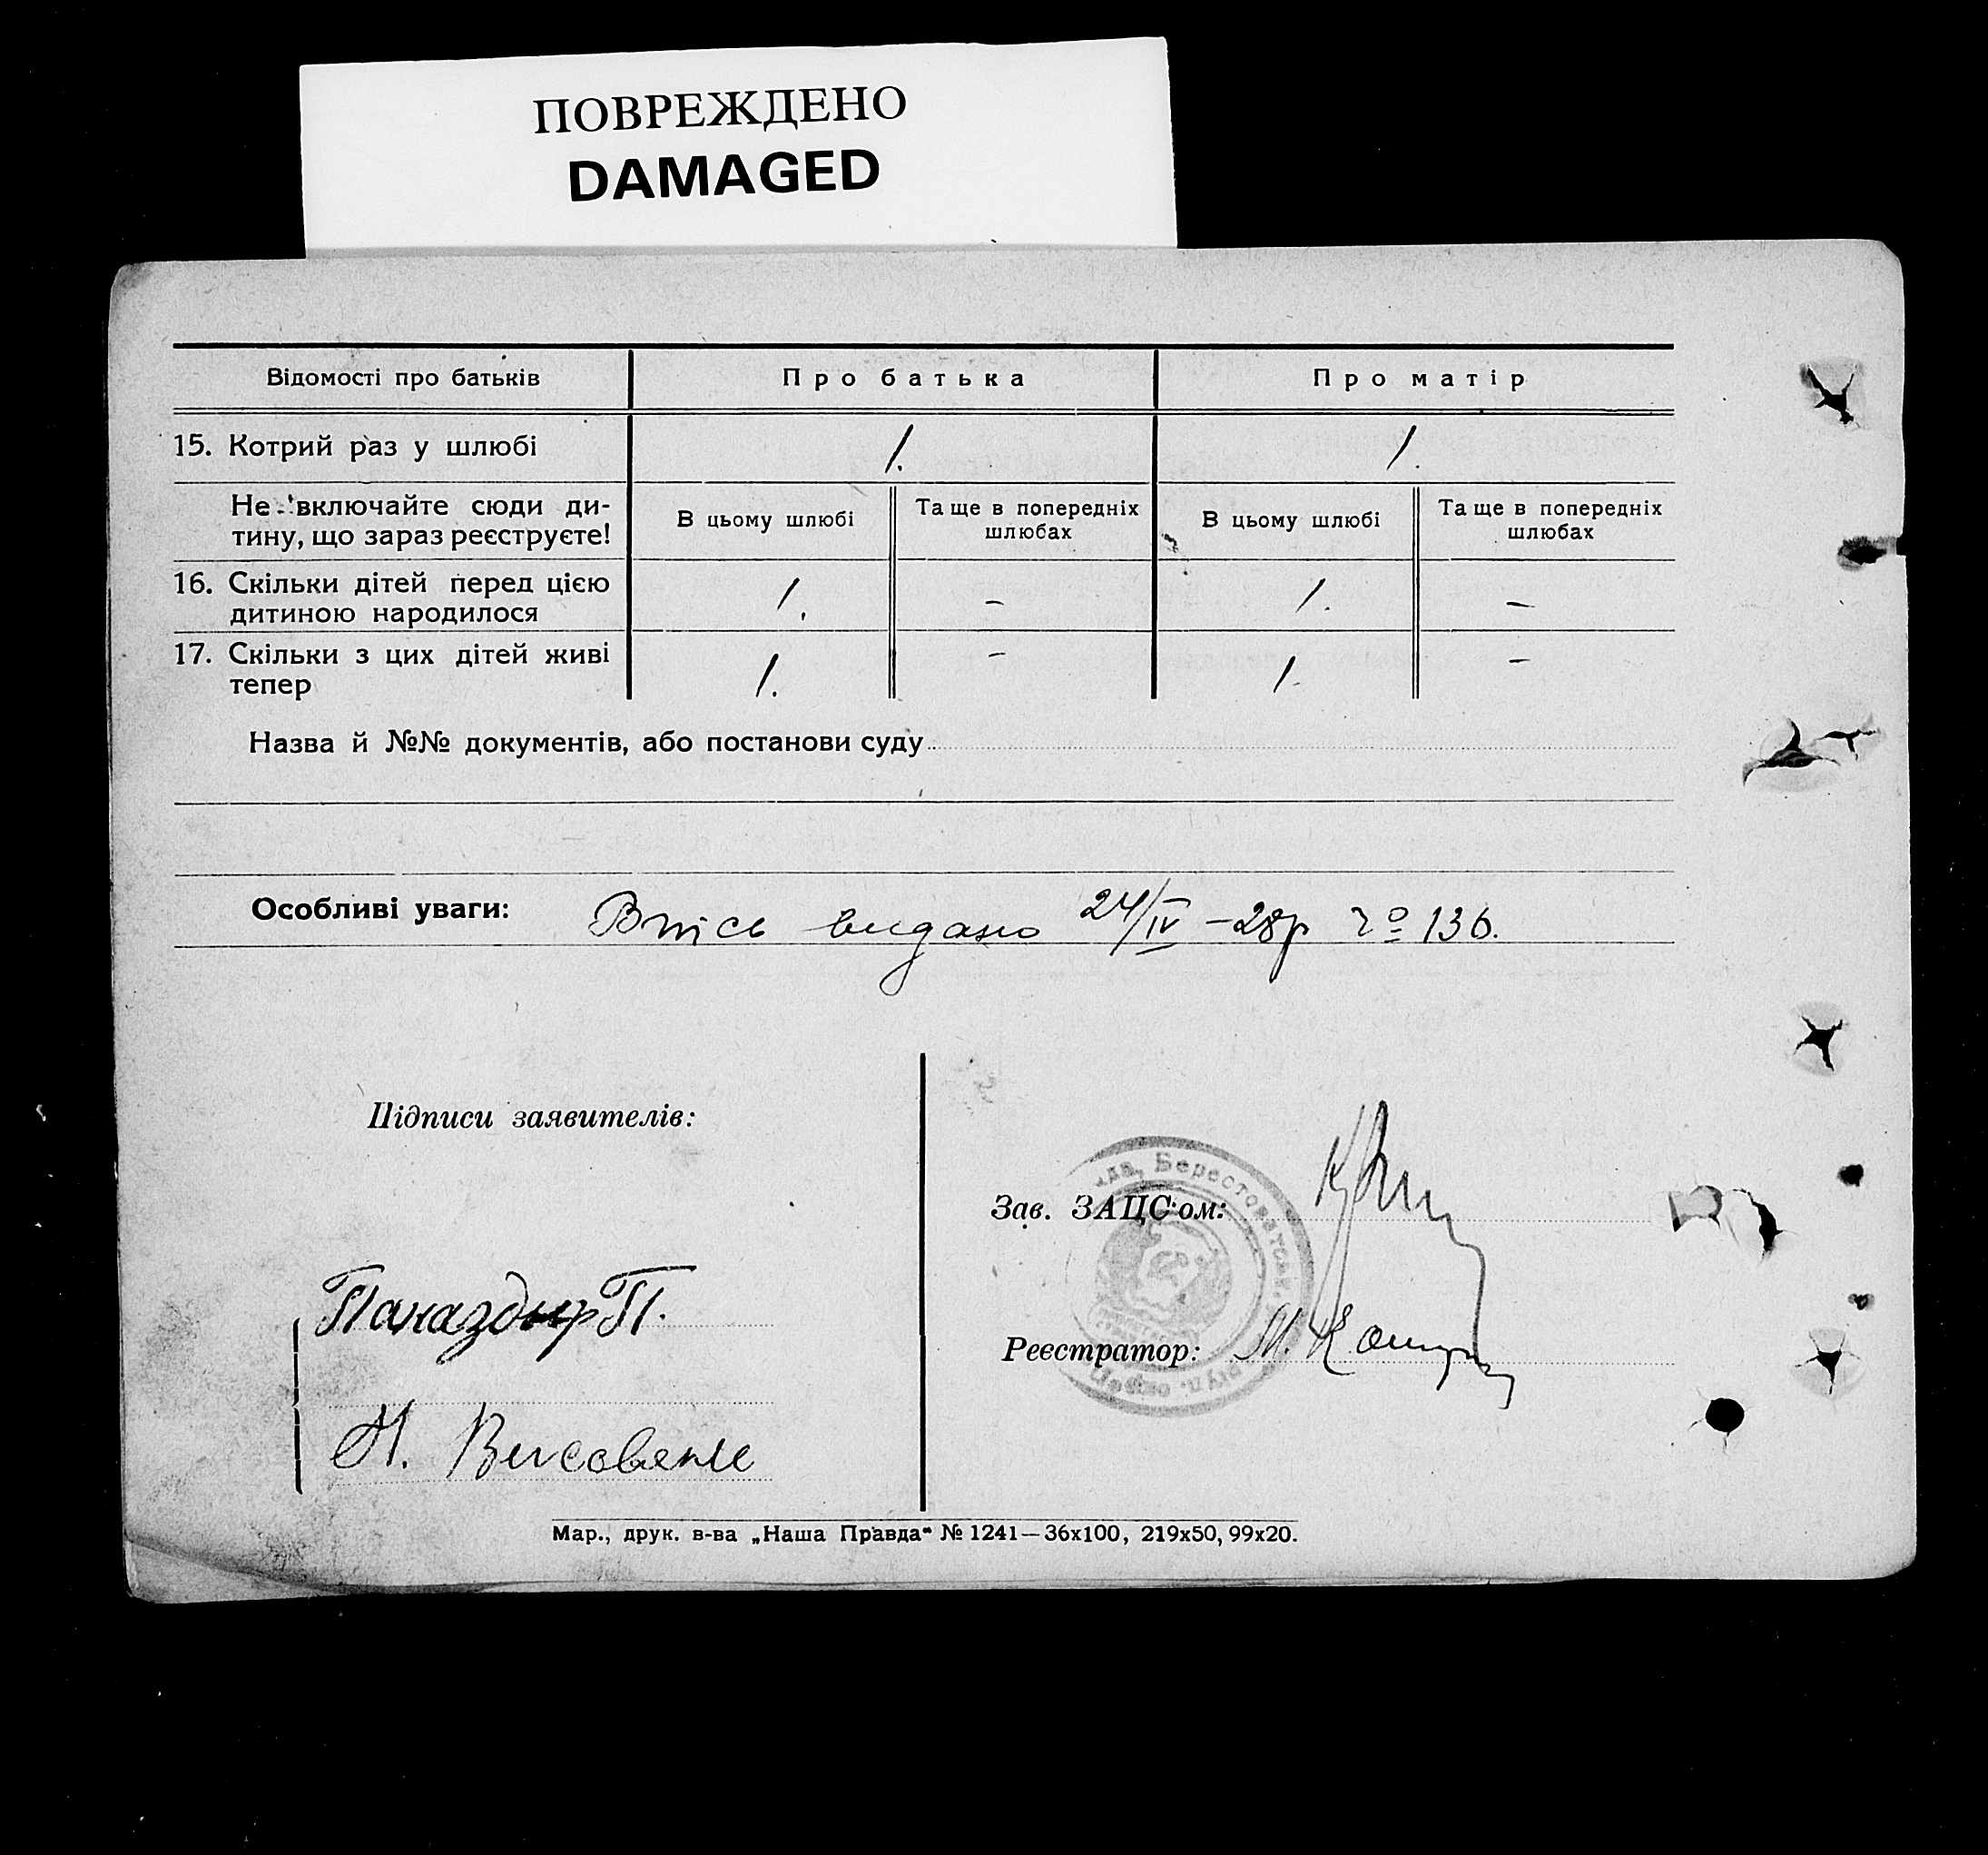 ПОВРЕЖДЕНО
DAMAGED
Відомості про батьків
Про батька
Про матір
15. Котрий раз у шлюбі
1.
1.
Не включайте сюди ди-
тину, що зараз реєструєте!
В цьому шлюбі
Та ще в попередніх
шлюбах
В цьому шлюбі
Та ще в попередніх
шлюбах
16. Скільки дітей перед цією
дитиною народилося
1.
–
1.
–
17. Скільки з цих дітей живі
тепер
1.
–
1.
–
Назва й №№ документів, або постанови суду
Особливі уваги: Впісь видано 24/IV – 28р № 136.
Підписи заявителів:
Зав. ЗАЦС'ом:
Реєстратор: М.
П.
Н.
Мар., друк. в-ва „Наша Правда“ № 1241—36x100, 219x50, 99x20.